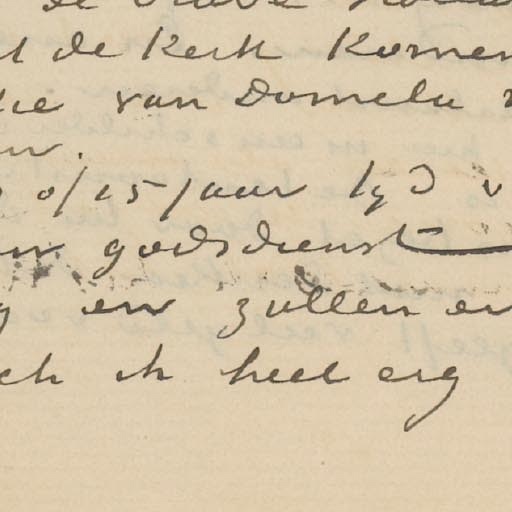 de
t de Kerk Komen
tie van Domela
en.
of 15 jaar tijd v
en godsdienst
en zullen er
ch ik heel erg